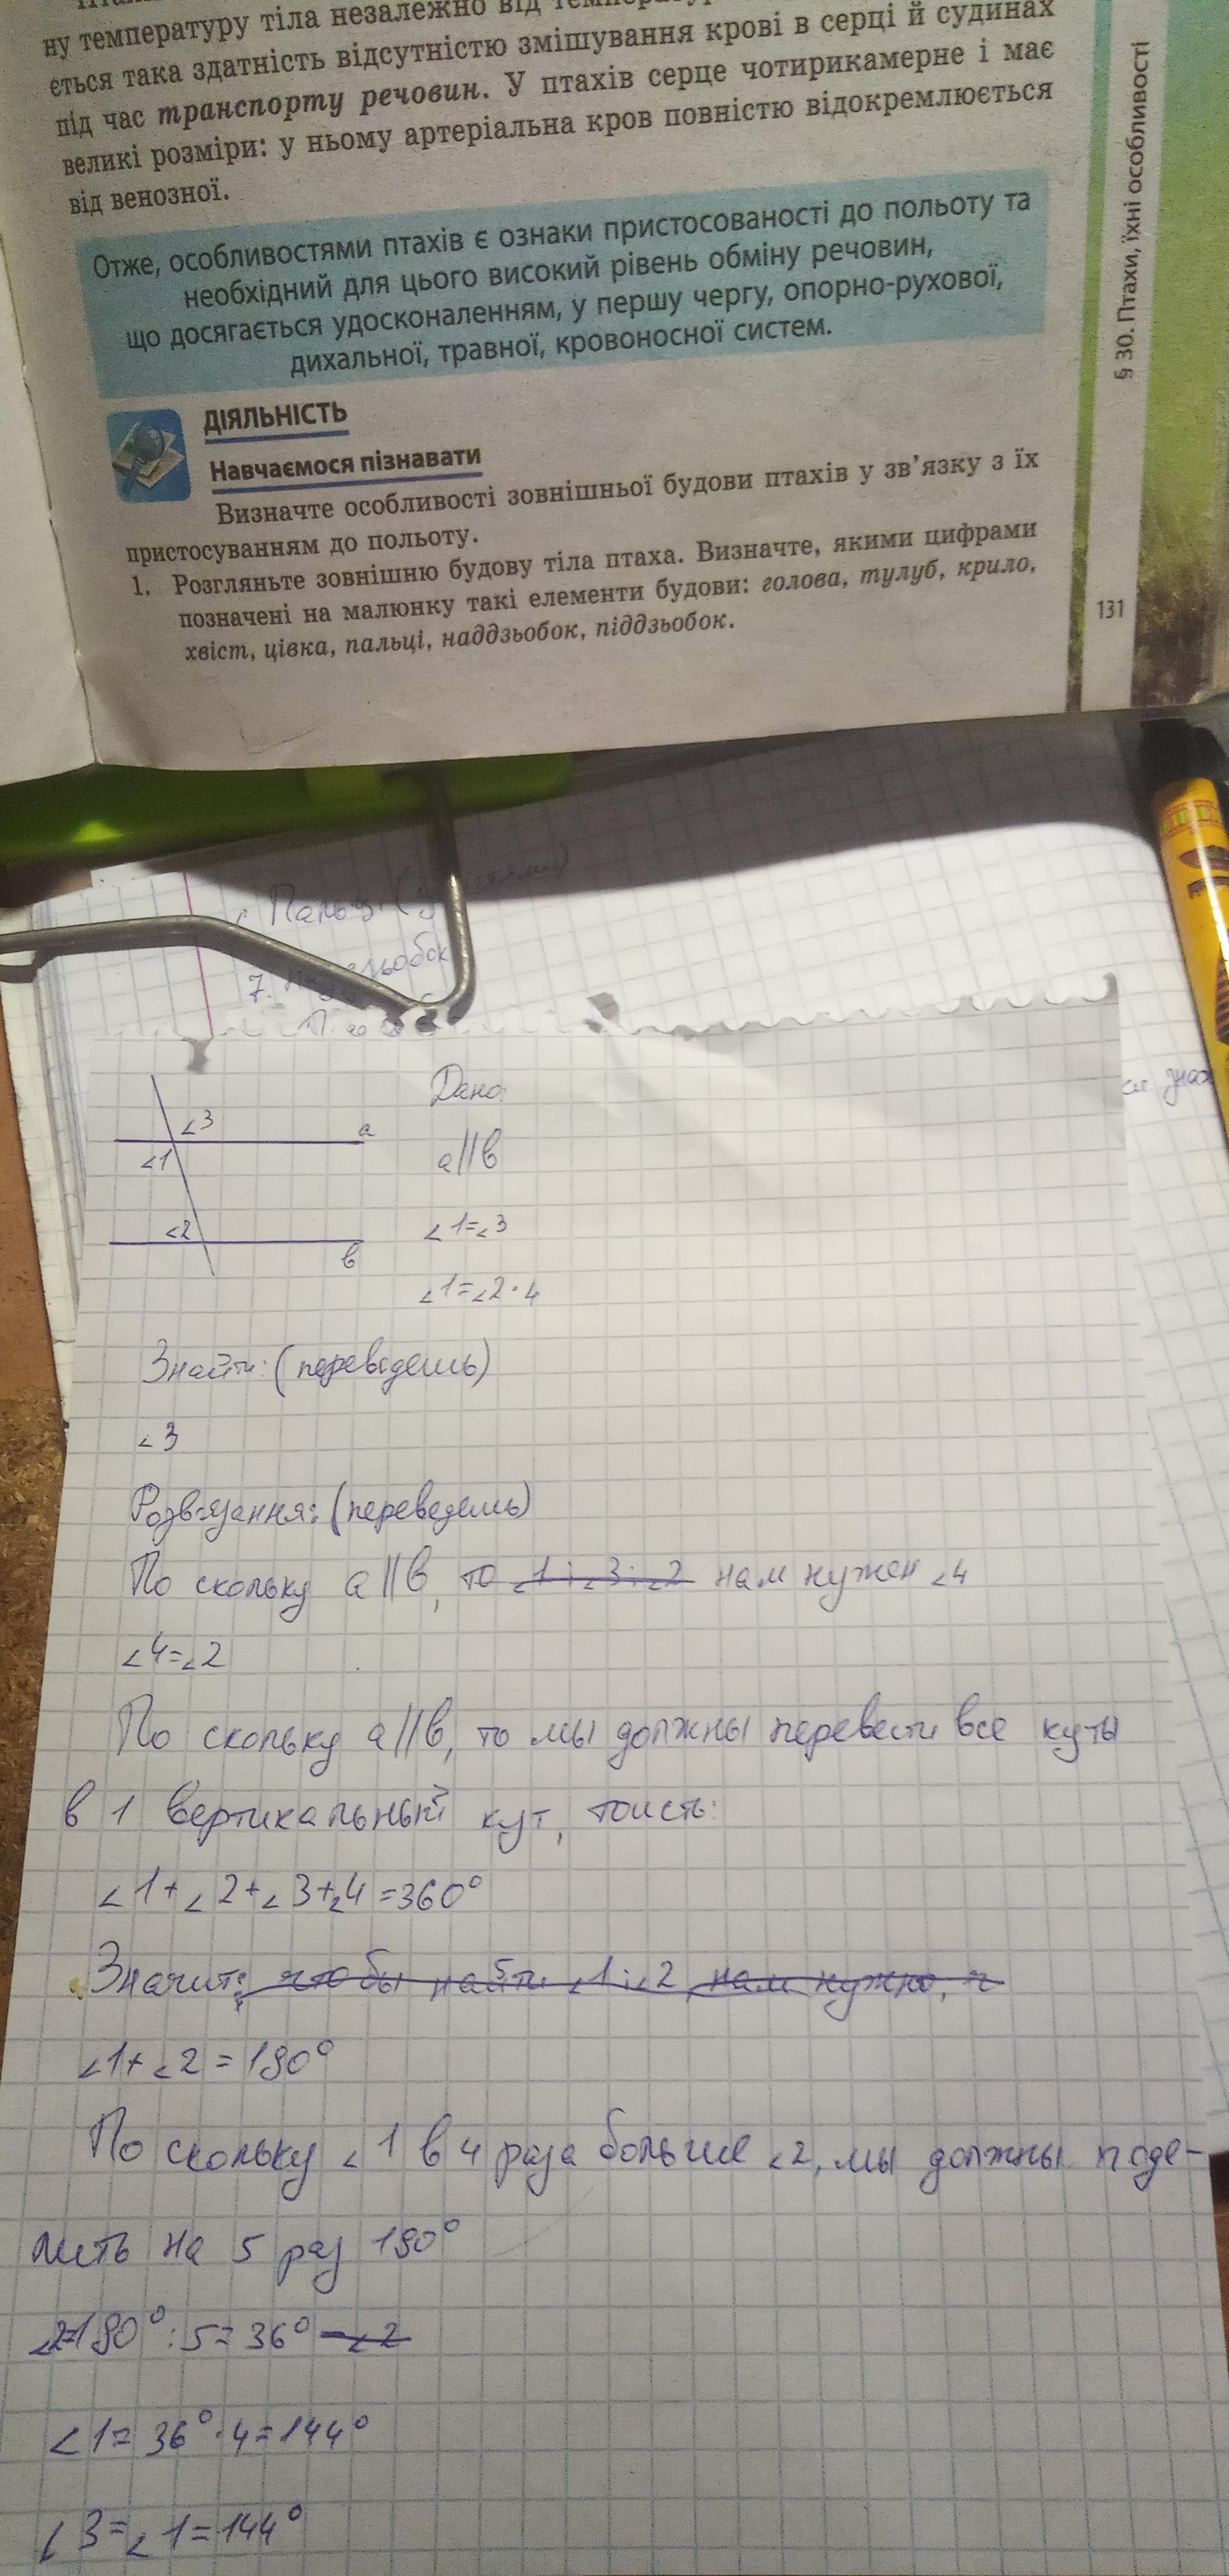 ну температуру тіла незалежно від
ється така здатність відсутністю змішування крові в серці й судинах
під час транспорту речовин. У птахів серце чотирикамерне і має
великі розміри: у ньому артеріальна кров повністю відокремлюється
від венозної.
Отже, особливостями птахів є ознаки пристосованості до польоту та
необхідний для цього високий рівень обміну речовин,
що досягається удосконаленням, у першу чергу, опорно-рухової,
дихальної, травної, кровоносної систем.
ДІЯЛЬНІСТЬ
Навчаємося пізнавати
Визначте особливості зовнішньої будови птахів у зв'язку з їх
пристосуванням до польоту.
1. Розгляньте зовнішню будову тіла птаха. Визначте, якими цифрами
позначені на малюнку такі елементи будови: голова, тулуб, крило,
хвіст, цівка, пальці, наддзьобок, піддзьобок.
§ 30. Птахи, їхні особливості
131
7.
∠3
a
∠1
∠2
в
Дано:
a||в
∠1=∠3
∠1=∠2·4
Знайти: (переведешь)
∠3
Розв'язання: (переведешь)
По скольку a||в, то ∠1 i ∠3 i ∠2 нам нужен ∠4
∠4=∠2
По скольку a||в, то мы должны перевести все куты
в 1 вертикальный кут, тоисть:
∠1+∠2+∠3+∠4=360°
Значит: чтобы найти ∠1 i ∠2, нам нужно, ч
∠1+∠2=180°
По скольку ∠1 в 4 раза больше ∠2, мы должны поде-
лить на 5 раз 180°
∠2=180°:5=36° =∠2
∠1=36°·4=144°
∠3=∠1=144°